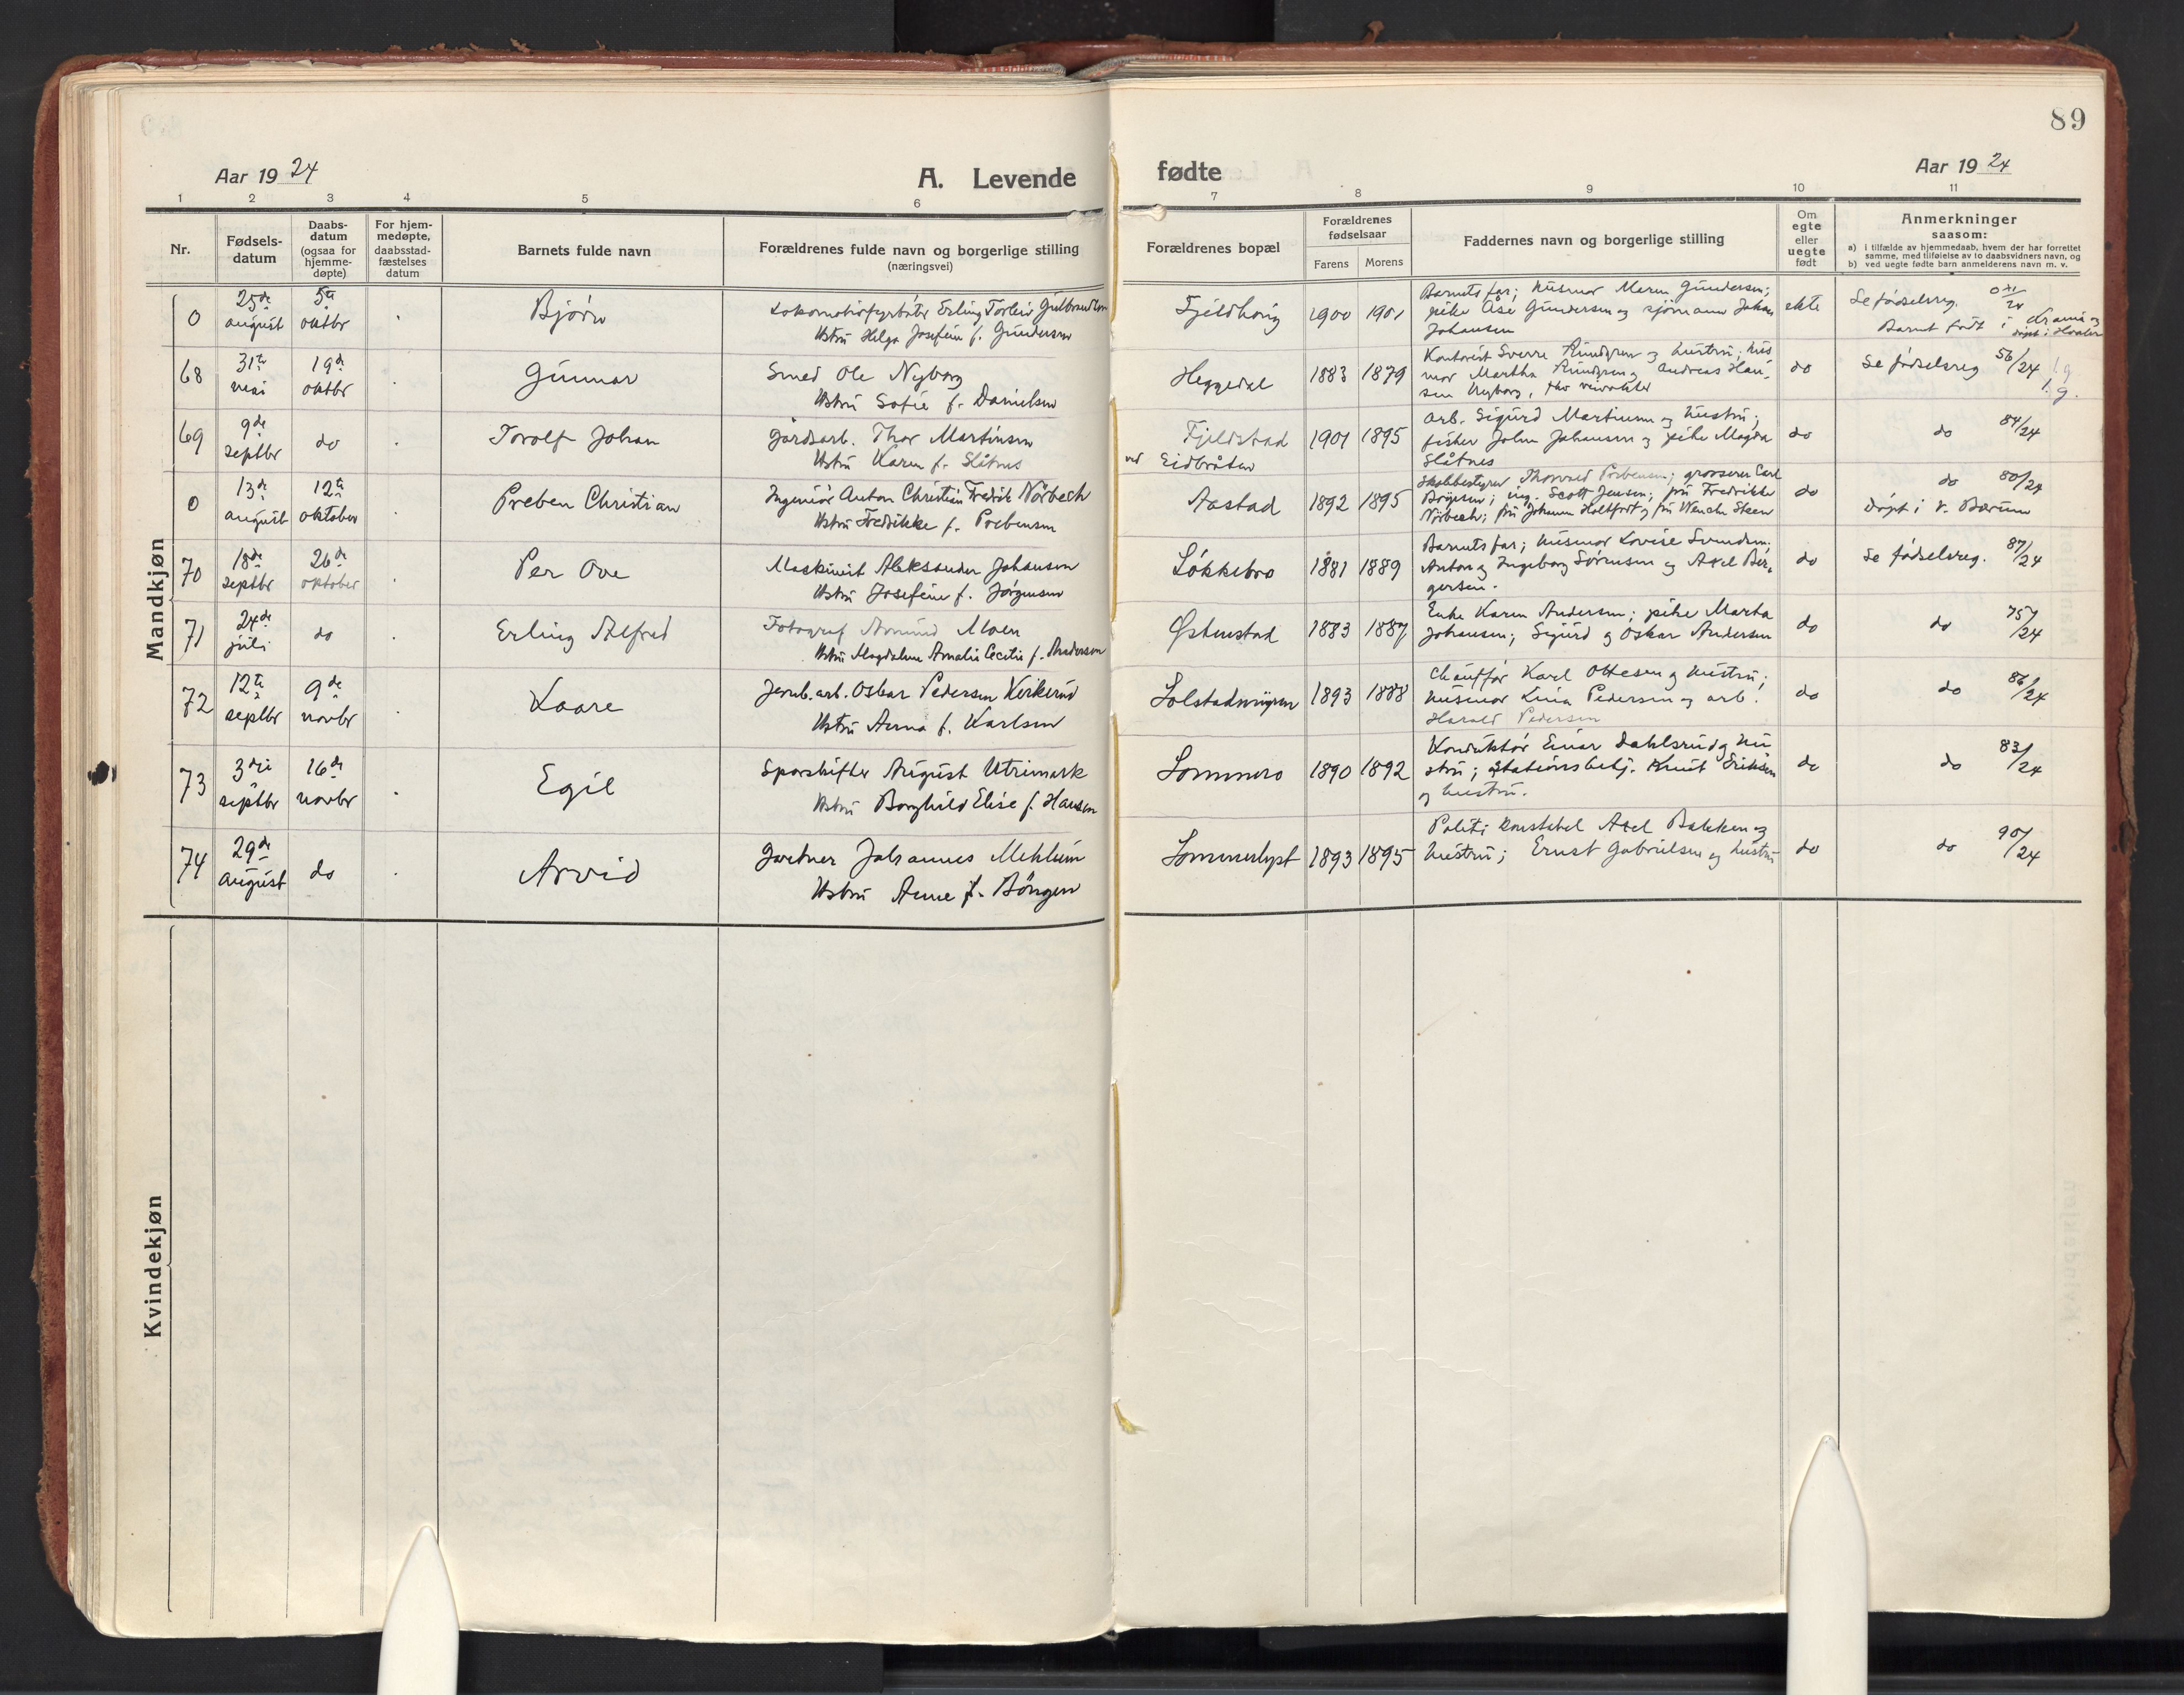 89
Aar 1924
A. Levende
fødte
Aar 1924
1 2 3 4 5 6 7 8 9 10 11
Nr.
Fødsels-
datum
Daabs-
datum
(ogsaa for
hjemme-
døpte)
For hjem-
medøpte,
daabsstad-
fæstelses
datum
Barnets fulde navn
Forældrenes fulde navn og borgerlige stilling
(næringsvei)
Forældrenes bopæl
Forældrenes
fødselsaar
Farens Morens
Faddernes navn og borgerlige stilling
Om
egte
eller
uegte
født
Anmerkninger
saasom:
a) i tilfælde av hjemmedaab, hvem der har forrettet
samme, med tilføielse av to daabsvidners navn, og
b) ved uegte fødte barn anmelderens navn m. v.
Mandkjøn
0
25de august
5te oktbr
Bjørn
Lokomotivfyrbøter Erling Torleiv Gulbrandsen
Hstru Helga Josefine f. Gundersen
Fjeldhoug
1900 1901
Barnets far; husmor Maren Gundersen;
pike Åse Gundersen og sjømann Johan
Johansen
ekte
Se fødselsreg.
Barnet født i Krania og
døpt i Hvaler
68
31te mai
19de oktbr
Gunnar
Smed Ole Nyborg
Hstru Sofie f. Danielsen
Heggedal
1883 1879
Kontorist Sverre Rundgren og hustru; hus
mor Martha Rundgren og Andreas Han-
sen Nyborg,
do
Se fødselsreg 56/24
69
9de septbr
do
Torolf Johan
Gårdsarb. Thor Martinsen
Hstru Karen f. Slåtnes
Fjeldstad
ved Eidbråten
1901 1895
Arb. Sigurd Martinsen og hustru;
fisker John Johansen og pike Magda
Slåtnes
do
do 84/24
0
13de august
12te oktober
Preben Christian
Ingeniør Anton Christian Fredrik Nørbech
Hstru Fredrikke f. Prebensen
Aastad
1892 1895
Skolebestyrer Thorvald Prebensen; grosserer Carl
Böyesen; ing. Scott Jensen; fru Fredrikke
Nørbech; fru Johanne Holtfodt og fru Wenche Steen
do
do 80/24
Døpt i V. Bærum
70
18de septbr
26de oktober
Per Ove
Maskinist Aleksander Johansen
Hstru Josefine f. Jørgensen
Løkkebro
1881 1889
Barnets far; husmor Lovise Svendsen;
Anton og Ingeborg Sørensen og Axel Ber-
gersen.
do
Se fødselsreg. 87/24
71
24de juli
do
Erling Alfred
Fotograf Amund Moen
Hstru Magdalene Amalie Cecilie f. Andersen
Østenstad
1883 1887
Enke Karen Andersen; pike Marta
Johansen; Sigurd og Oskar Andersen
do
do 75/24
72
12te septbr
9de novbr
Kaare
Jernb.arb. Oskar Pedersen Kerkerud
Hstru Anna f. Karlsen
Solstadmyren
1893 1888
Chauffør Karl Ottesen og hustru;
husmor Lina Pedersen og arb.
Harald Pedersen
do
do 86/24
73
3die septbr
16de novbr
Egil
Sporskifter August Utrimark
Hstru Borghild Elise f. Hansen
Sommero
1890 1892
Konduktør Einar Dahlsrud og hu
stru; Stationsbetj. Knut Eriksen
og hustru.
do
do 83/24
74
29de august
do
Arvid
Gartner Johannes Mehlum
Hstru Anne f. Böngen
Sommerlyst
1893 1895
Politikonstabel Axel Bakken og
hustru; Ernst Gabrielsen og hustru
do
do 90/24
Kvindekjøn